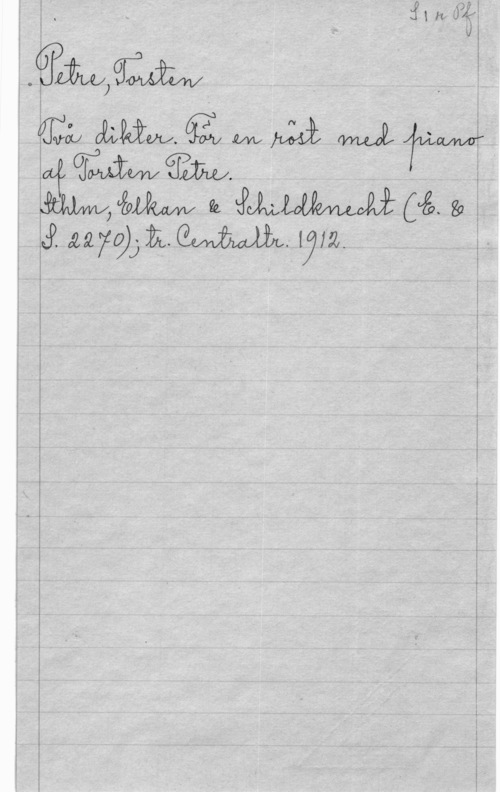 S 1 n Pf
Petre, Torsten
Två dikter. För en röst med piano
af Torsten Petre.
Sthlm, Elkan & Schildknecht (E. &
S. 2270); tr. Centraltr. 1912.